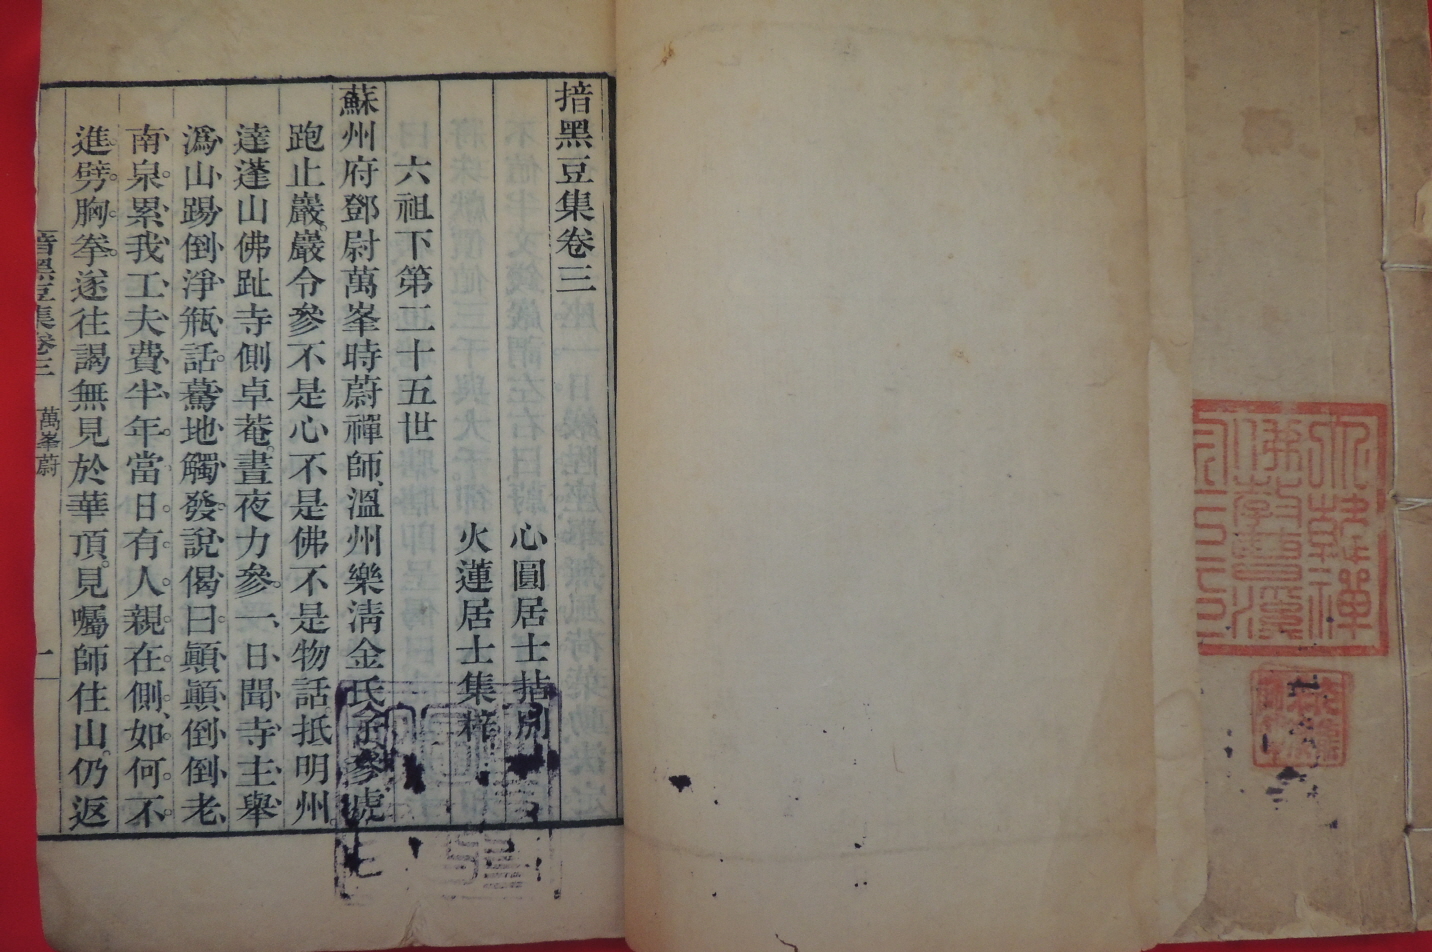 揞黑豆集卷三
心圓居士拈別
火蓮居士集梓
六祖下第二十五世
蘇州府鄧尉萬峯時蔚禪師溫州樂清金氏子參虎
跑止巖巖令參不是心不是佛不是物話抵明州
達蓬山佛趾寺側卓菴晝夜力參一日聞寺主舉
溈山踢倒淨瓶話驀地觸發說偈曰顛顛倒倒老
南泉累我工夫費半年當日有人親在側如何不
進劈胸拳遂往謁無見於華頂見囑師住山仍返
揞黑豆集卷三 萬峯蔚 一